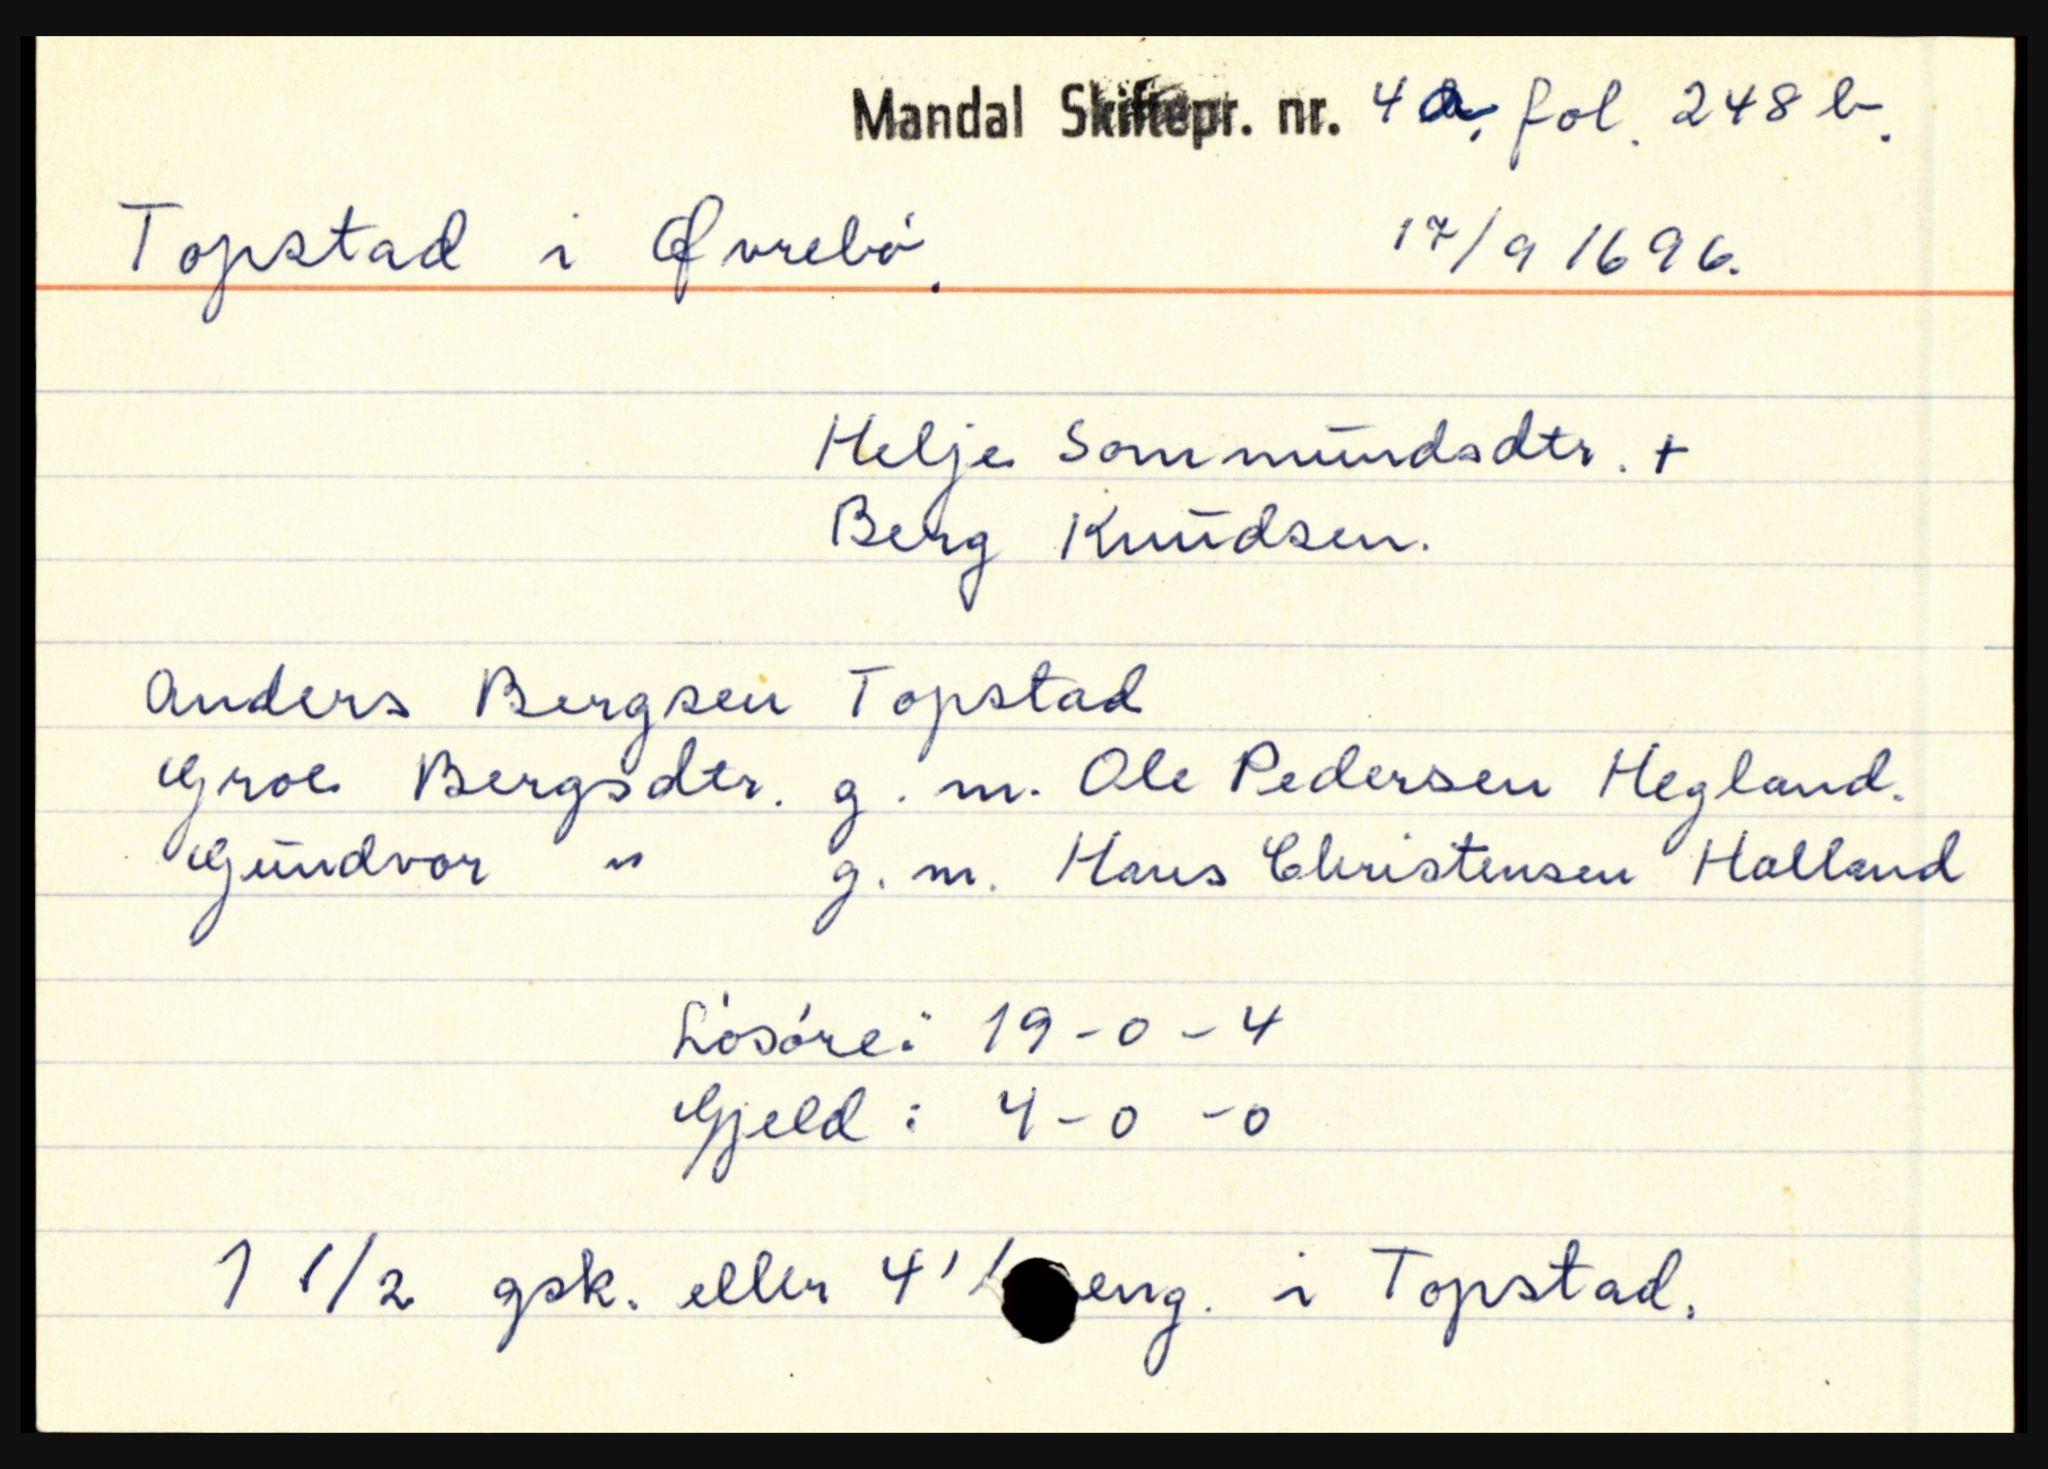 Mandal Skiftepr. nr. 4a. fol. 248 b.
Topstad i Øvrebö. 17/9 1696.
Helje Sommundsdtr. +
Berg Knudsen.
Anders Bergsen Topstad
Groe Bergsdtr. g. m. Ole Pedersen Hegland.
Gundvor " g. m. Hans Christensen Halland
Lösöre: 19-0-4
Gjeld: 4-0-0
1 1/2 gsk. eller 4 eng. i Topstad.